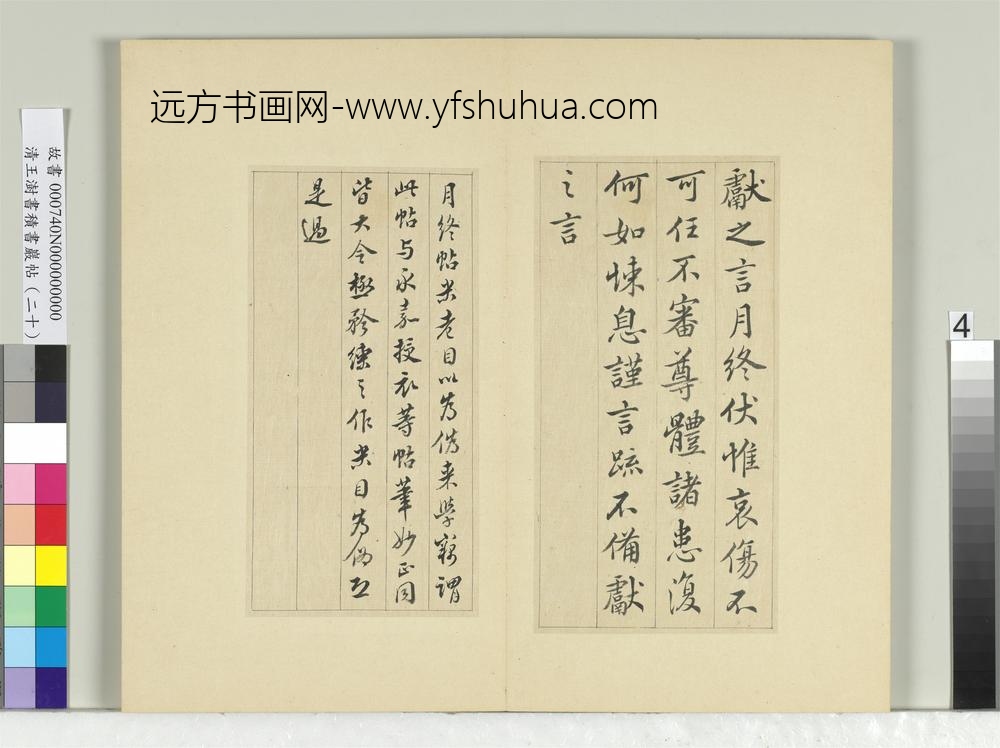 远方书画网-www.yfshuhua.com
獻之言月終伏惟哀傷不
可任不審尊體諸患復
何如悚息謹言疏不備獻
之言
月終帖米老目以為僞來學竊謂
此帖与永嘉授衣等帖筆妙正同
皆大令極矜練之作米目為偽
是過
故書 000740N000000000
清王澍書積書巖帖(二十)
4